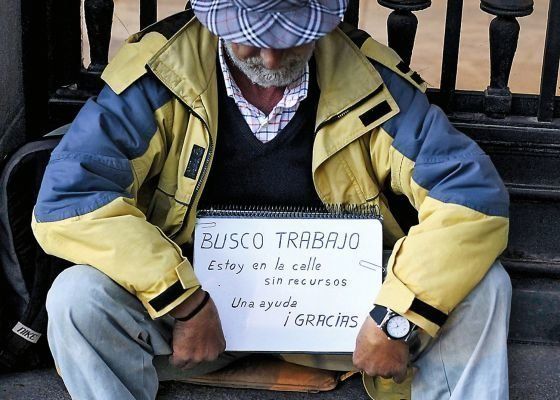 BUSCO TRABAJO
Estoy en la calle
sin recursos
Una ayuda
¡GRACIAS
NIKE